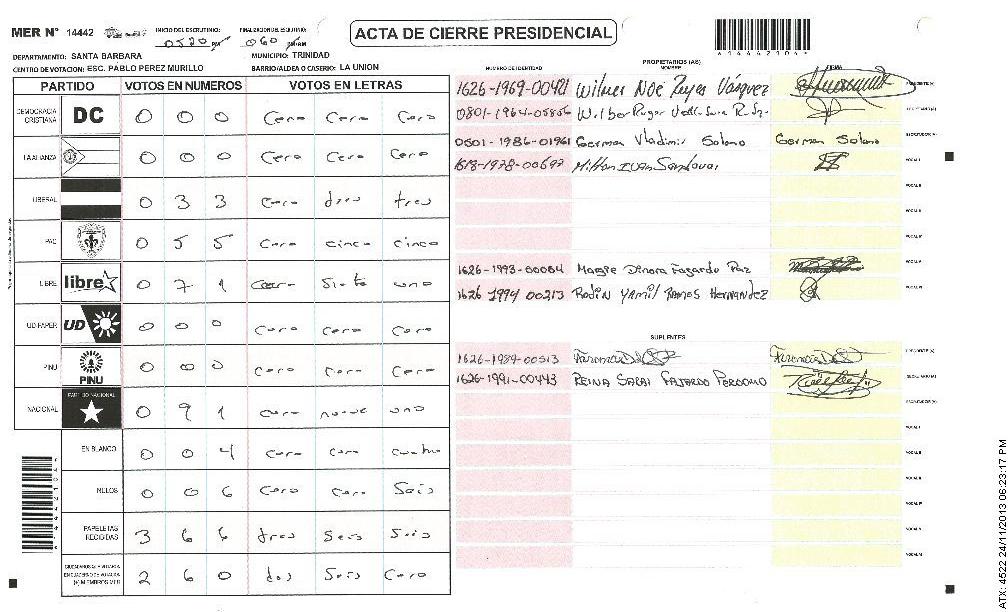 MER N° 14442 INICIO DEL ESCRUTINIO: 0520 PM FINALIZACION DEL ESCRUTINIO: 060
ACTA DE CIERRE PRESIDENCIAL
DEPARTAMENTO: SANTA BARBARA MUNICIPIO: TRINIDAD
CENTRO DE VOTACION: ESC. PABLO PEREZ MURILLO BARRIO/ALDEA O CASERIO: LA UNION
PARTIDO VOTOS EN NUMEROS VOTOS EN LETRAS
DEMOCRACIA CRISTIANA DC 0 0 0 Cero Cero Cero
LA ALIANZA 0 0 0 Cero Cero Cero
LIBERAL 0 3 3 Cero tres tres
PAC 0 5 5 Cero cinco cinco
LIBRE libre 0 7 1 Cero Siete uno
UD-FAPER UD 0 0 0 Cero Cero Cero
PINU PINU 0 0 0 Cero Cero Cero
NACIONAL PARTIDO NACIONAL 0 9 1 Cero nueve uno
EN BLANCO 0 0 4 Cero Cero Cuatro
NULOS 0 0 6 Cero Cero Seis
PAPELETAS RECIBIDAS 3 6 6 tres Seis Seis
2 6 0 dos Seis Cero
PROPIETARIOS (AS)
NUMERO DE IDENTIDAD NOMBRE FIRMA
1626-1969-00421 Wilmer Noe Reyes Vásquez
0801-1964-05856 Wilber Roger
0501-1986-01961 German Vladimir Solano German Solano
1618-1978-00697 Milton IVAN Sandoval
1626-1993-00064 Magie Dinora Fajardo Paz
1626 1994 00213 Rodin YAMIL RAMOS HERNANDEZ
SUPLENTES
1626-1989-00513
1626-1991-00443 REINA SARAI FAJARDO PERDOMO
ATX: 4522 24/11/2013 06:23:17 PM